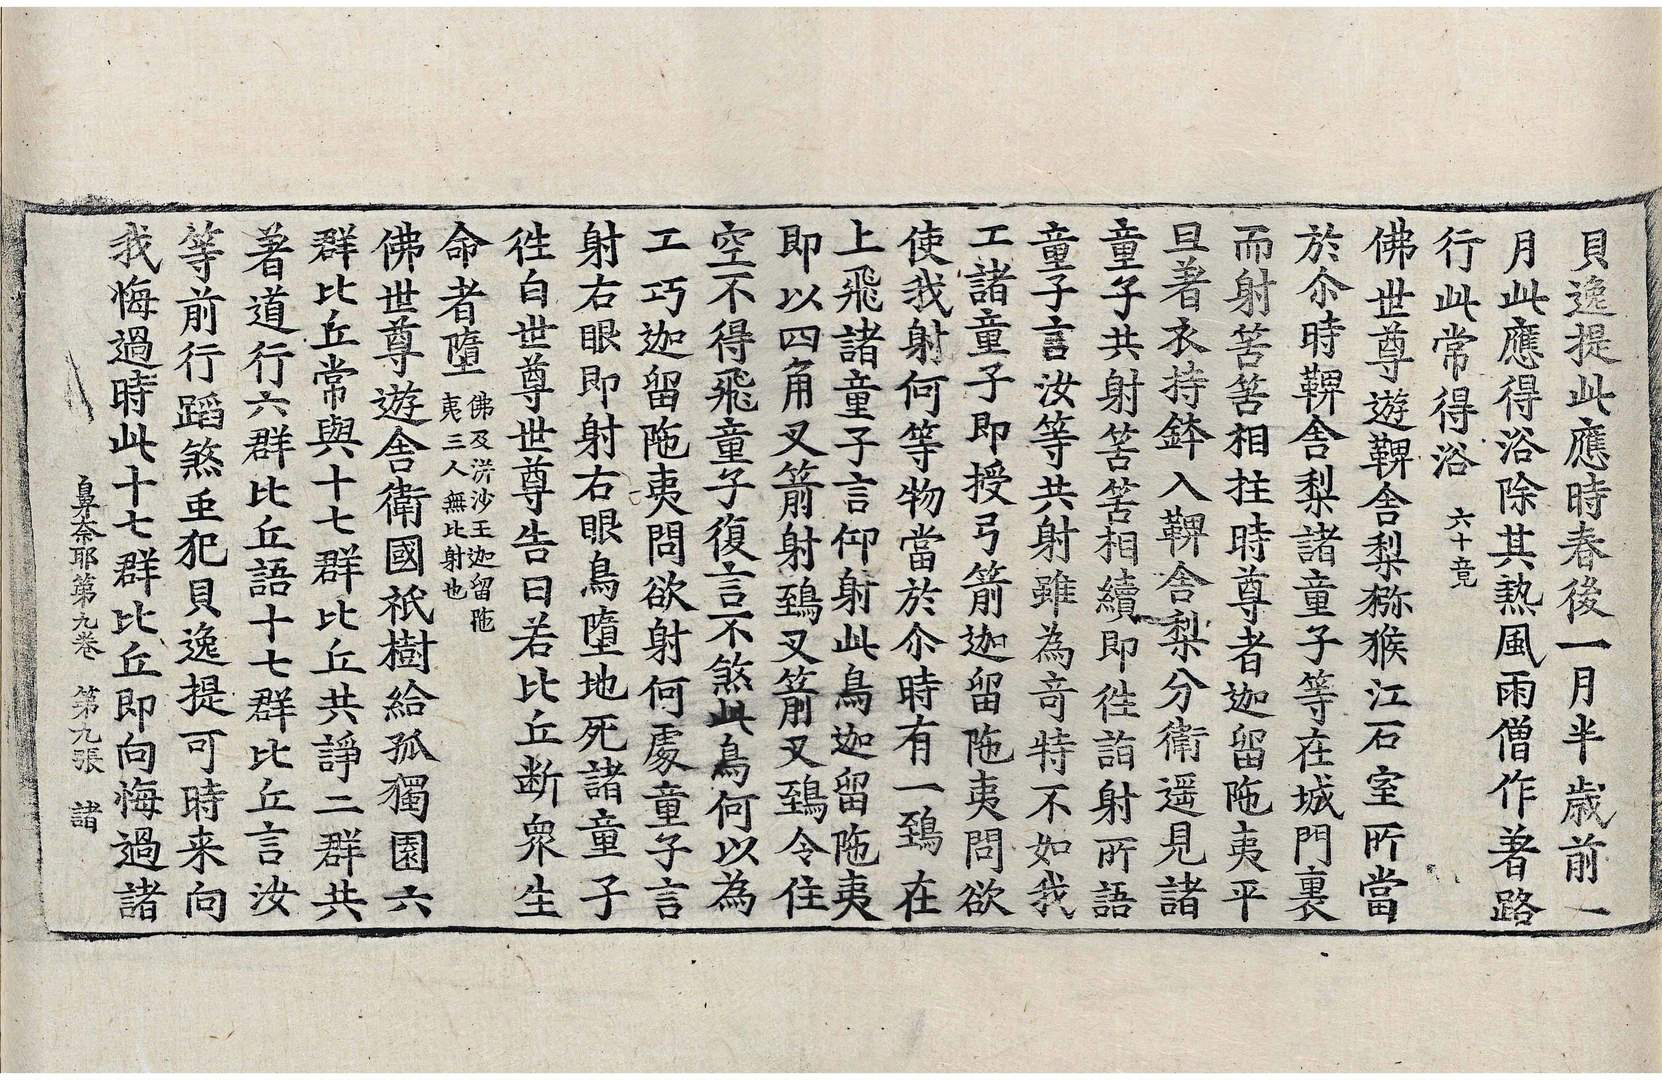 貝逸提此應時春後一月半歲前一
月此應得浴除其熱風雨僧作著路
行此常得浴六十竟
佛世尊遊鞞舍梨獼猴江石室所當
於尒時鞞舍梨諸童子等在城門裏
而射筈筈相拄時尊者迦留陁夷平
旦著衣持鉢入鞞舍梨分衛遥見諸
童子共射筈筈相續即徃詣射所語
童子言汝等共射雖為竒特不如我
工諸童子即授弓箭迦留陁夷問欲
使我射何等物當於尒時有一鵄在
上飛諸童子言仰射此鳥迦留陁夷
即以四角叉箭射鵄叉箭叉鵄令住
空不得飛童子復言不煞此鳥何以為
工巧迦留陁夷問欲射何處童子言
射右眼即射右眼鳥墮地死諸童子
徃白世尊世尊告曰若比丘断衆生
命者墮佛及洴沙王迦留陁夷三人無比射也
佛世尊遊舍衛國祇樹給孤獨園六
群比丘常與十七群比丘共諍二群共
著道行六群比丘語十七群比丘言汝
等前行蹈煞虫犯貝逸提可時来向
我悔過時此十七群比丘即向悔過諸
鼻奈耶第九卷 第九張 諸